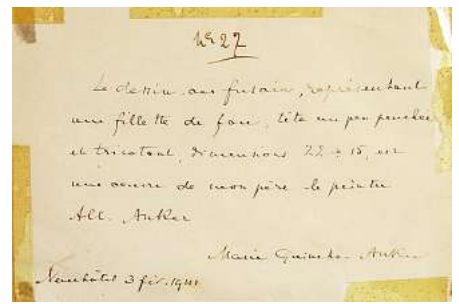 No 27
Le dessin au fusain, représentant
une fillette de face, tête un peu penchée
et tricotant, dimensions 22 à 15, est
une œuvre de mon père le peintre
Alb. Anker
Marie Quinche-Anker
Neuchâtel 3 fév. 1941